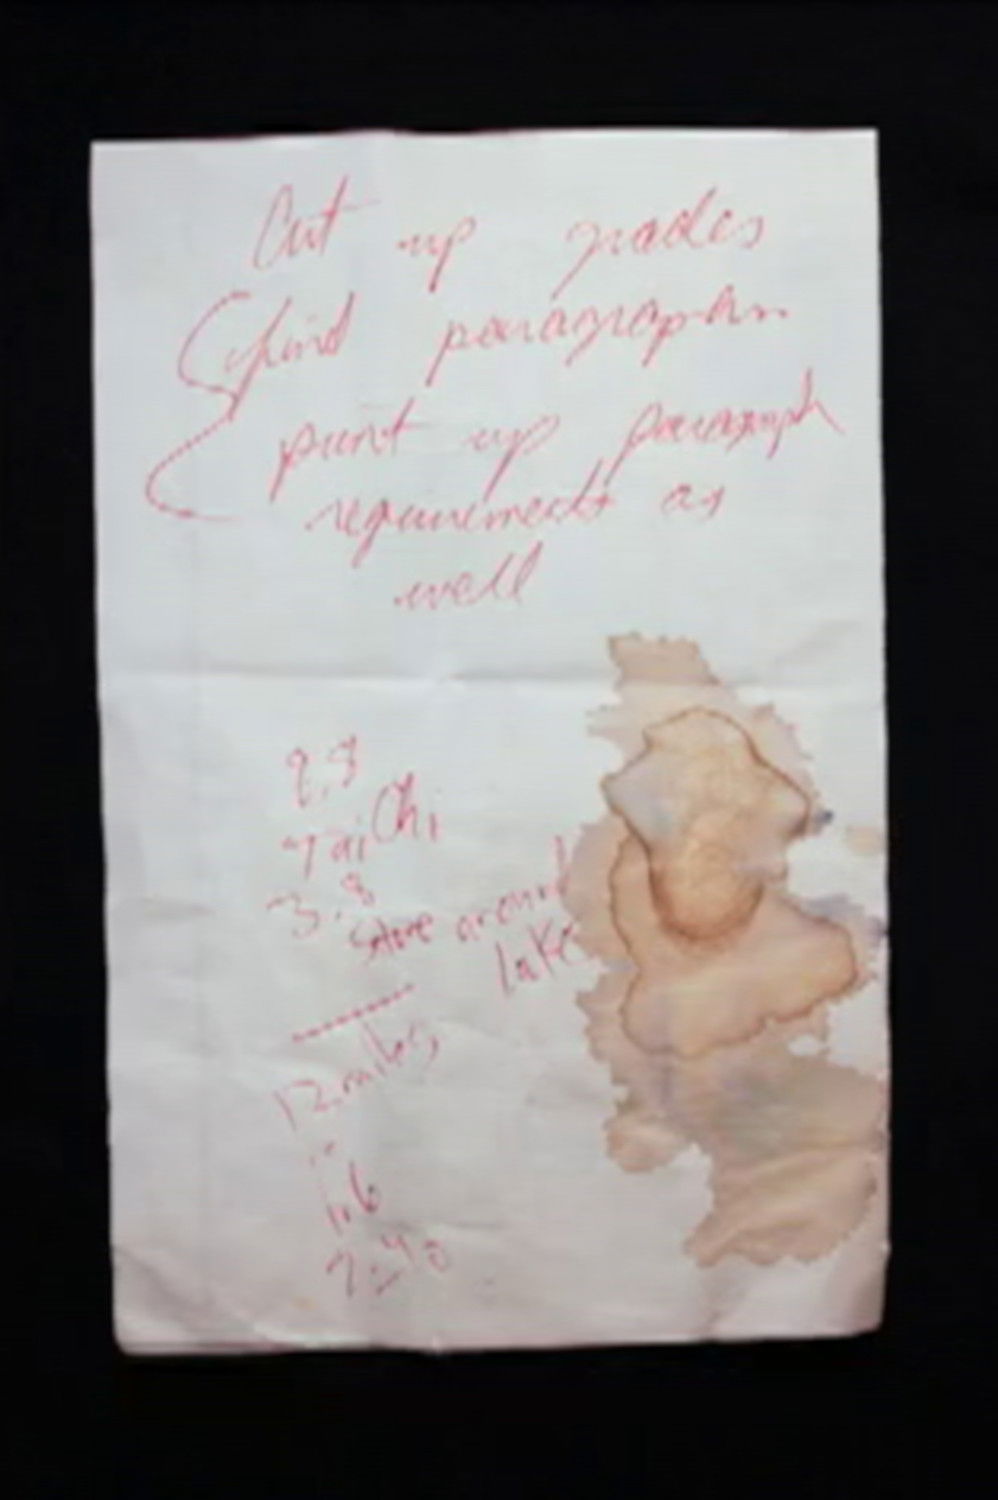 Cut up grades
find paragraphs
print up paragraph
requirements as
well
Tai Chi
3.8
Store around
lake
12 miles
1.6
2.40